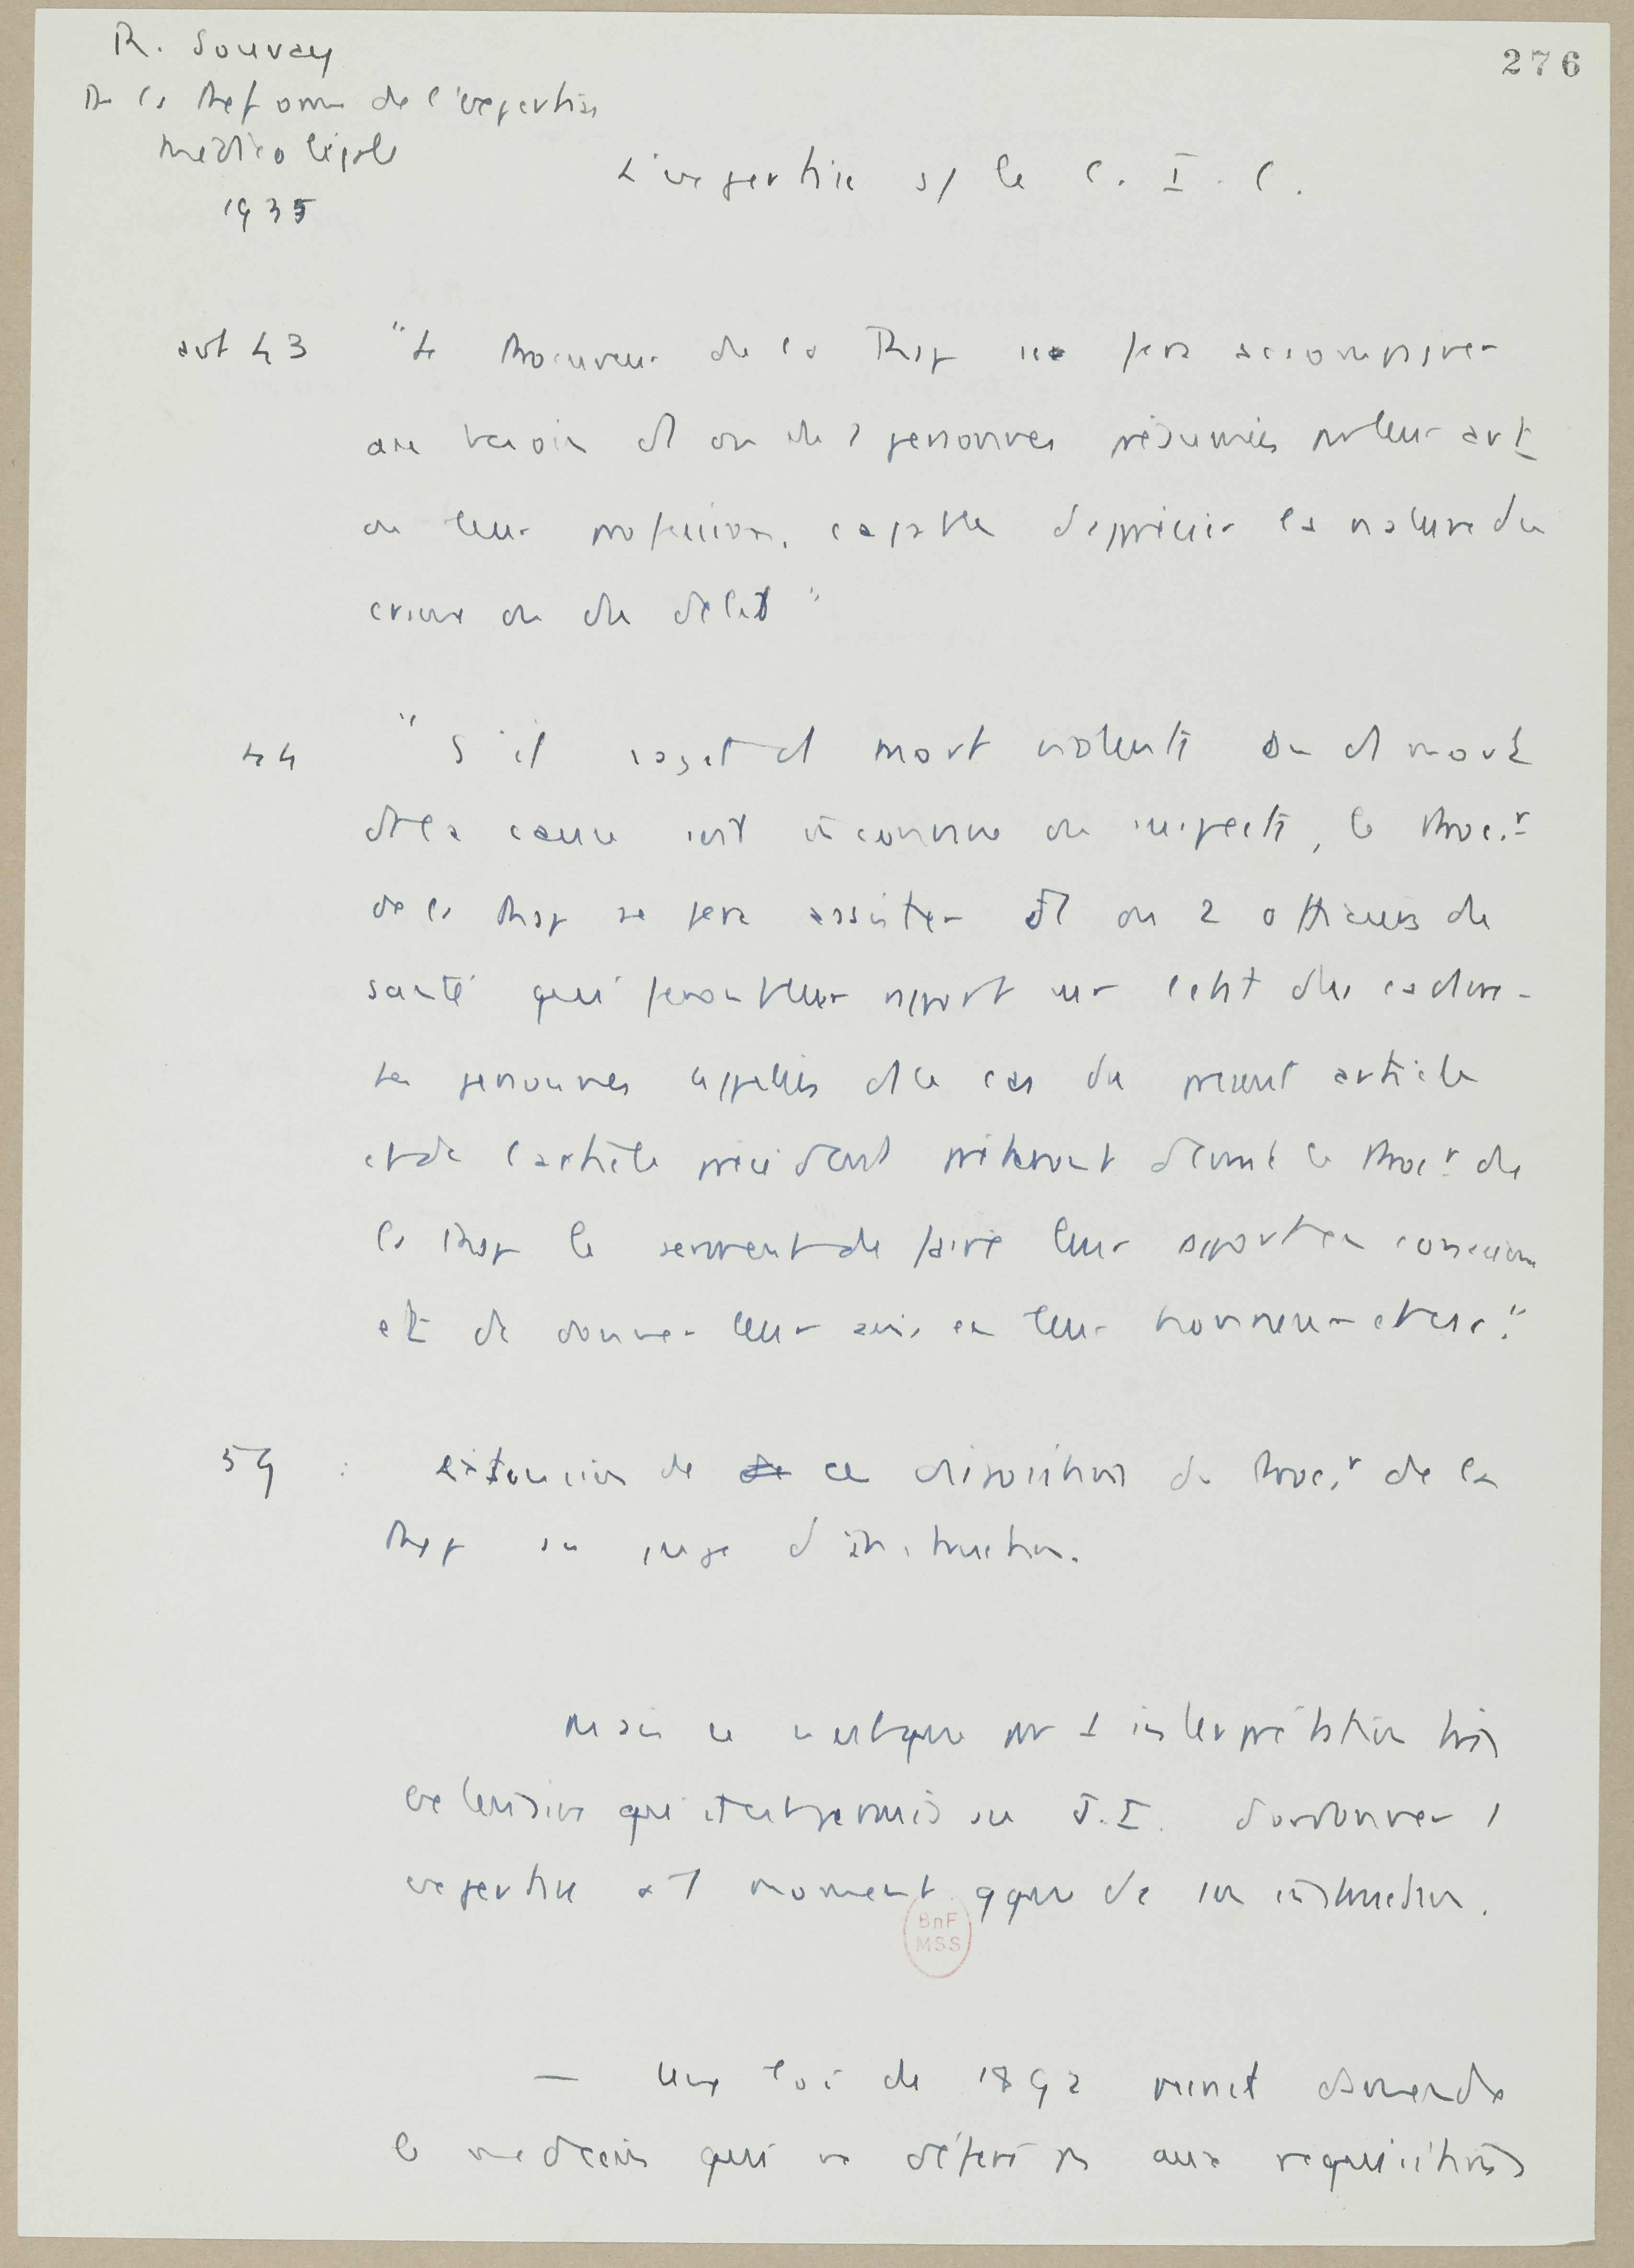 R. Souvay
De la Reforme de l'expertise
médico légale
1935
276
L'expertise s/ le C. I. C.
art 43 "Le Procureur de la Rep se fera accompagner
au besoin d'1 ou de 2 personnes présumées par leur art
ou leur profession, capable d'apprécier la nature du
crime ou du délit"
44 "S'il s'agit d'1 mort violente ou d'1 mort
dt la cause soit inconnue ou suspecte, le Procr
de la Rep se fera assister d'1 ou 2 officiers de
santé qui feront leur rapport sur l'état du cadavre.
Les personnes appelées ds le cas du présent article
et de l'article précédent prêteront devant le Procr de
la Rep le serment de faire leur rapport en conscience
et de donner leur avis en leur honneur et
59 : extension de ce dispositions du Procr de la
Rep au juge d'instruction.
Mais ce n'est que par 1 interprétation très
extensive qui était permis au J.I. d'ordonner 1
expertise à 1 moment qque de son instruction.
BnF
MSS
— Une loi de 1892 punit d'amende
le médecin qui ne défère pas aux réquisitions